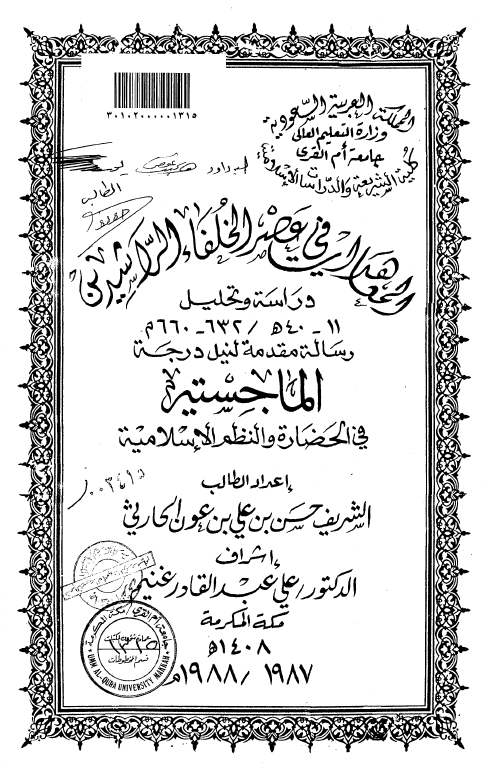 ٣٠١٠٢٠٠٠٠٠١٣١٥
المملكة العربية السعودية
وزارة التعليم العالي
جامعة أم القرى
كلية الشريعة والدراسات الإسلامية
الطالب
المعاهدات في عصر الخلفاء الراشدين
دراسة وتحليل
١١ - ٤٠هـ / ٦٣٢ - ٦٦٠م
رسالة مقدمة لنيل درجة
الماجستير
في الحضارة والنظم الإسلامية
إعداد الطالب
الشريف حسن بن علي بن عون الحارثي
إشراف
الدكتور/ علي عبد القادر غنيم
مكة المكرمة
١٤٠٨هـ
١٩٨٧/ ١٩٨٨م
جامعة أم القرى / مكة المكرمة
عمادة شؤون المكتبات
١٣١٥
قسم المخطوطات
UMM AL-QURA UNIVERSITY MAKKAH